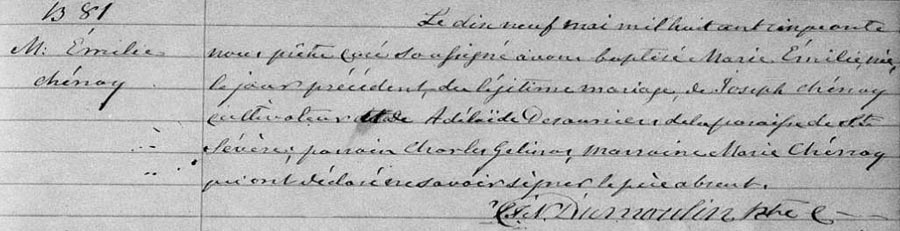 B 81
M. Émilie
Chénay
Le dix neuf mai mil huit cent cinquante
nous prêtre curé soussigné avons baptisé Marie Émilie, née,
le jour précédent, du légitime mariage, de Joseph Chénay
cultivateur et de Adélaïde Desaunier, de la paroisse de Ste
Sévère; parrain Charles Gelinas, marraine Marie Chénay
qui ont déclaré ne savoir signer le père absent.
Dumoulin Ptre C